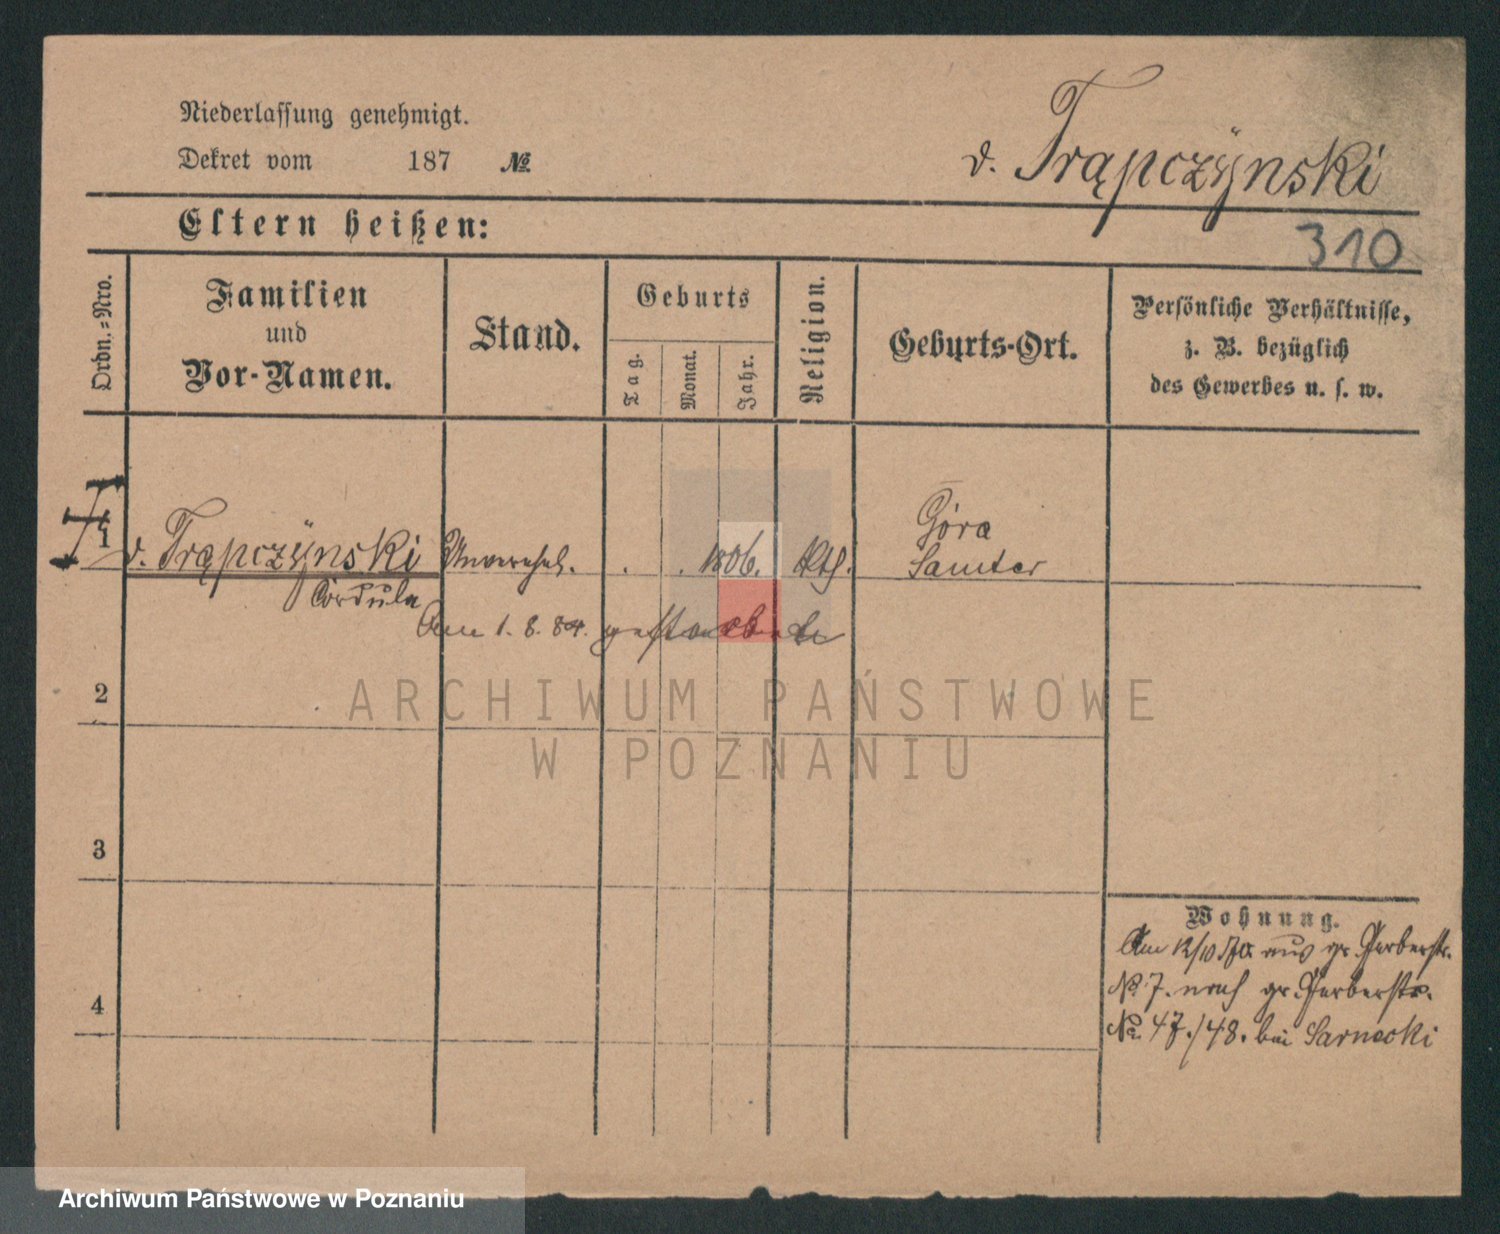 Niederlassung genehmigt.
Dekret vom 187 №
v. Trąpczÿnski
Eltern heißen:
310
Ordn.=Nro.
Familien
und
Vor-Namen.
Stand.
Geburts
Tag.
Monat.
Jahr.
Religion.
Geburts-Ort.
Persönliche Verhältnisse,
z. B. bezüglich
des Gewerbes u. s. w.
1 v. Trąpczÿnski Unverehel. . . 1806. Kth. Góra
Samter
Cordula
Am 1. 8. 84. gestorben
2
ARCHIWUM PAŃSTWOWE
W POZNANIU
3
Wohnung.
Am 12/10 aus gr Gerberstr.
№ 7. nach gr. Gerberstr.
4
№ 47./48. bei Sarnecki
Archiwum Państwowe w Poznaniu